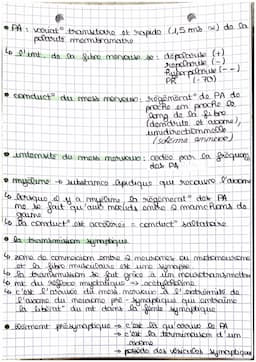 • PA : variat° transitoire et rapide (1,5 ms ) de la
polarité membranaire
↳ l'int. de la fibre nerveuse se : dépolarise (+)
repolarise (-)
hyperpolarise (--)
PR (-70)
• conduct° du mess nerveux : régénérat° de PA de
proche en proche le
long de la fibre
(dendrite et axone),
unidirectionnelle
(schéma annexe)
• intensité du mess nerveux : codée par la fréquence
des PA
• myéline → substance lipidique qui recouvre l'axone
↳ lorsque il y a myéline la régénérat° des PA
ne se fait qu'aux nœuds entre 2 manchons de
gaine
↳ la conduct° est accélérée = conduct° saltatoire
• la transmission synaptique
↳ zone de connexion entre 2 neurones ou motoneurone
et la fibre musculaire est une synapse
↳ la transmission se fait grâce à un neurotransmetteur
↳ nt du réflexe myotatique → acétylcholine
↳ c'est l'arrivée du mess nerveux à l'extrémité de
l'axone du neurone pré-synaptique qui entraîne
la libérat° du nt dans la fente synaptique
• élément présynaptique → c'est là qui arrive le PA
→ c'est la terminaison d'un
axone
→ possède des vésicules synaptiques